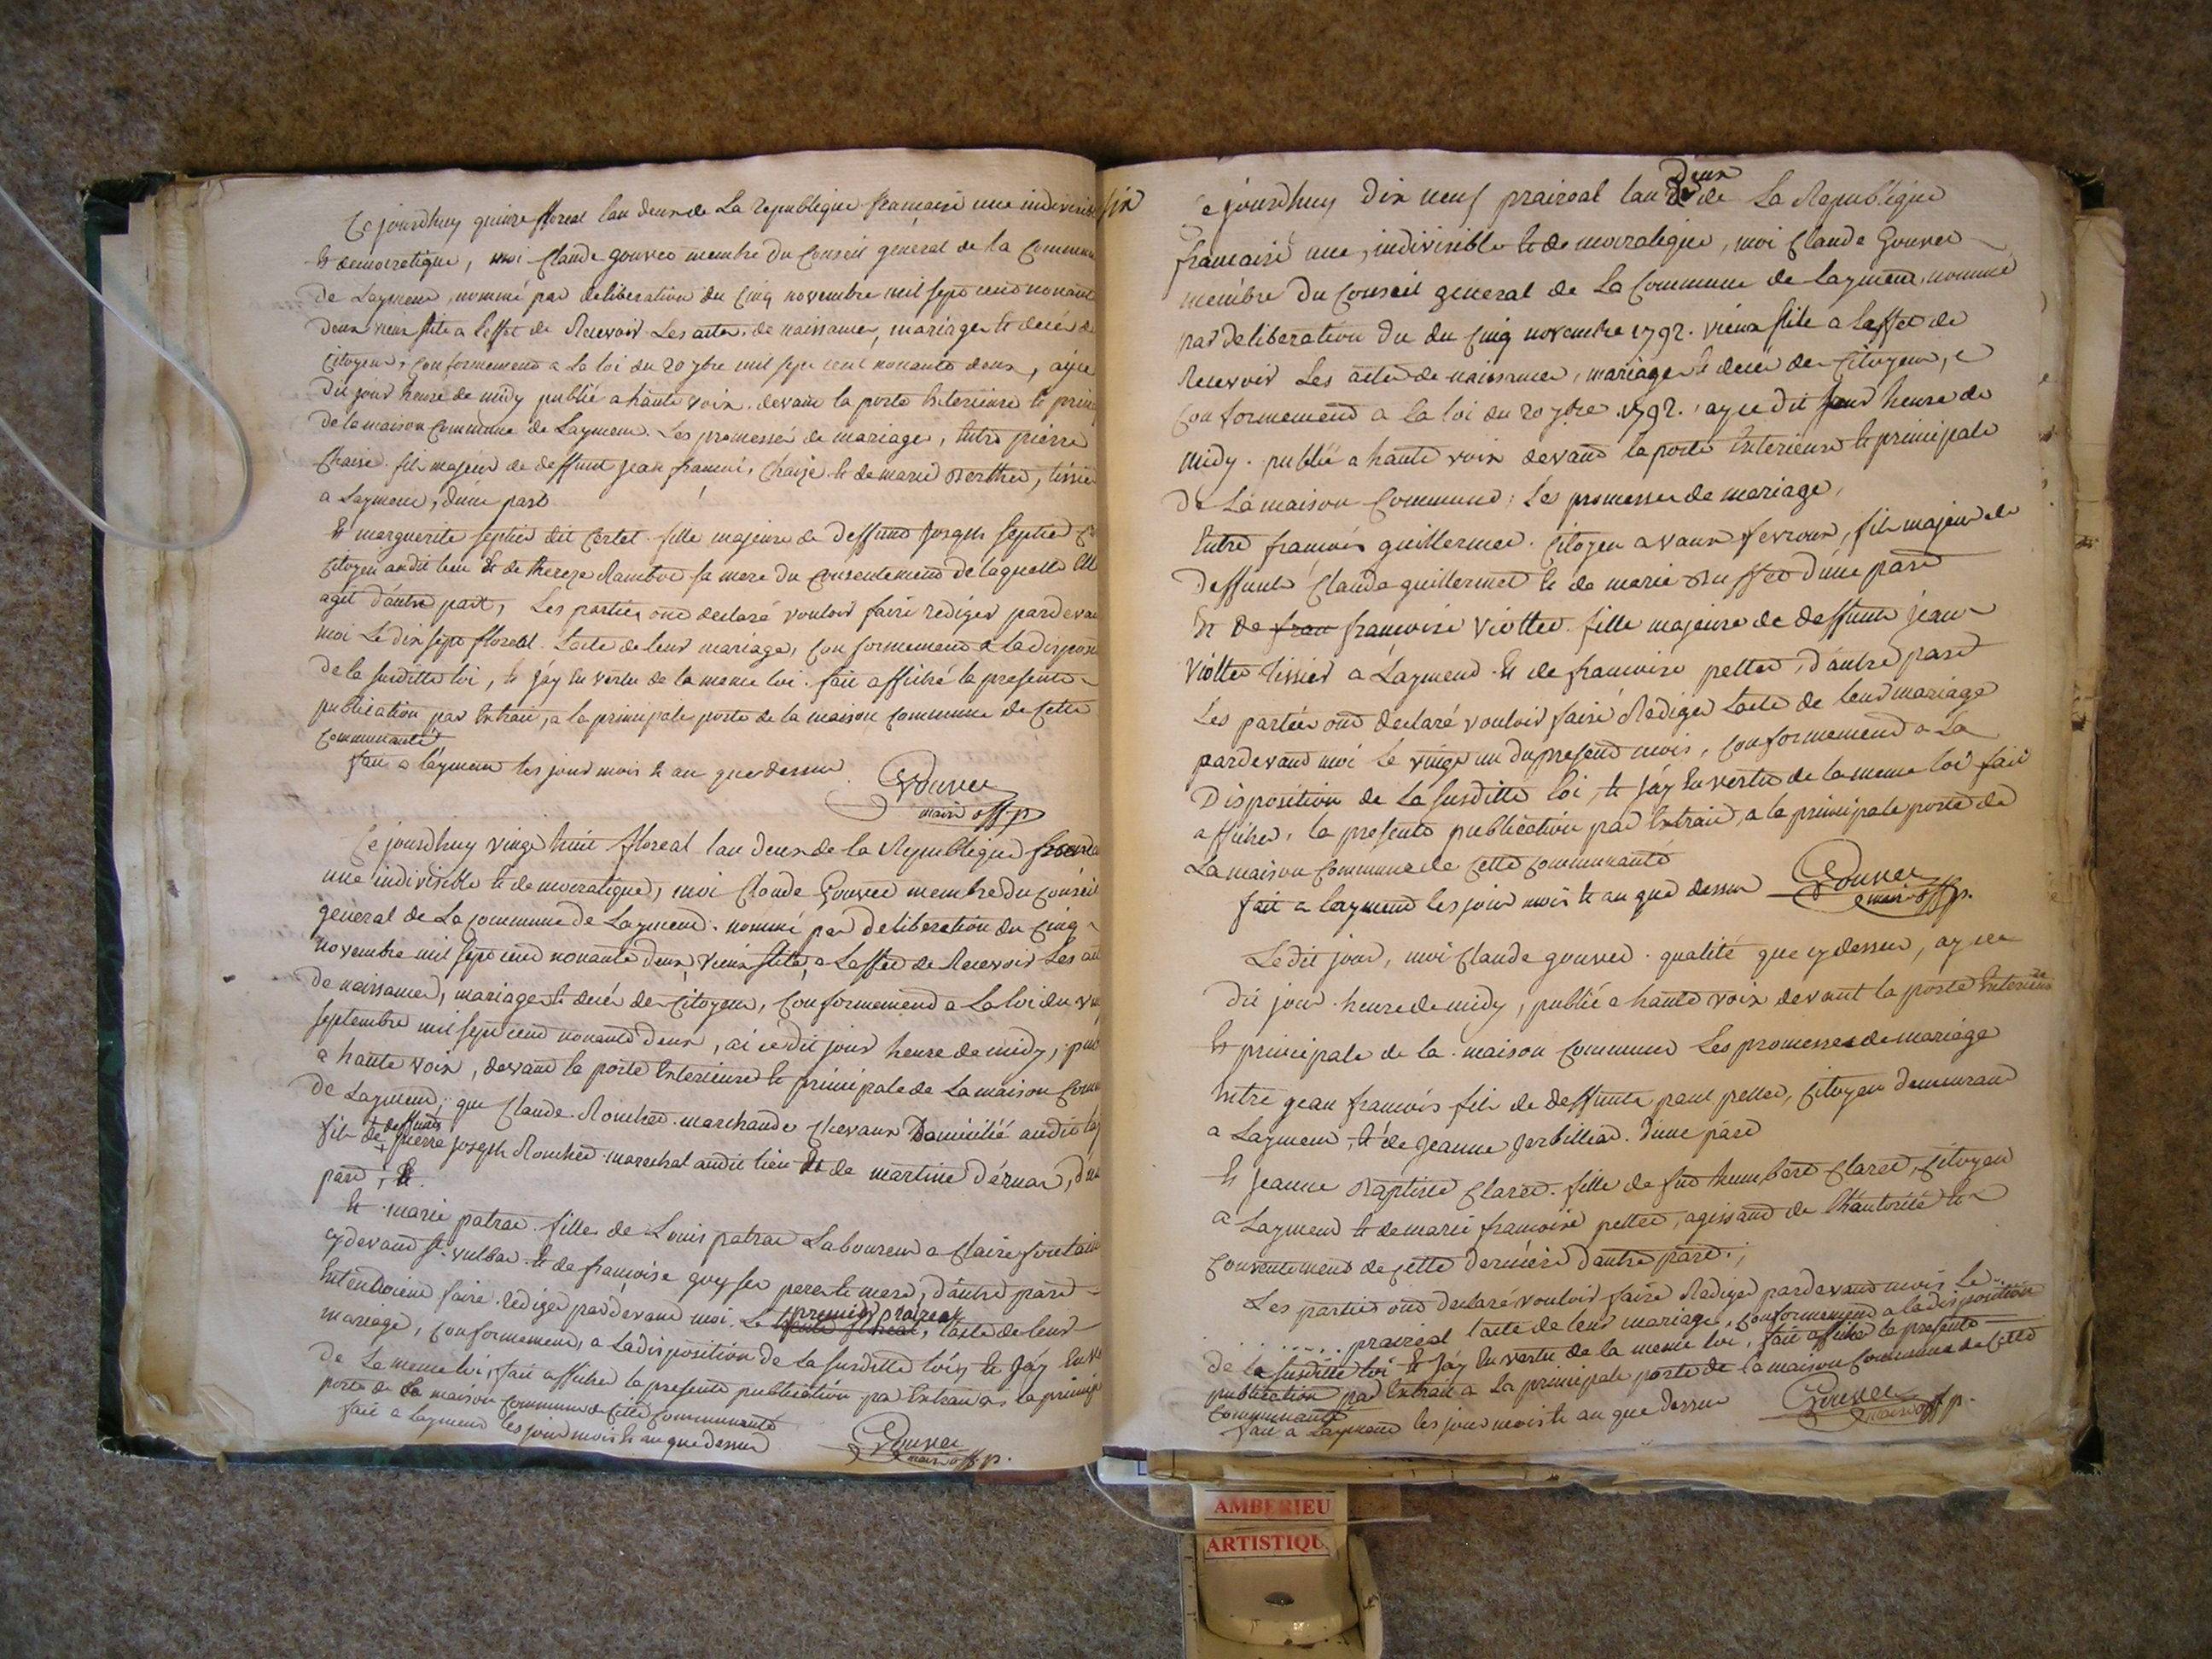 Cejourdhuy quinze floreal lan deux de La republique francaise une indivisible
et democratique, moi Claude gouvet membre du Conseil général de la Commune
de Laymend, nommé par deliberation du Cinq novembre mil sept cend nonante
deux vieux stile a leffet de Recevoir Les actes de naissance, mariage et decés de
Citoyens, Conformemend a La loi du 20 7bre mil sept cend nonante deux, ay ce
dit jour heure de midy publié a haute voix devand la porte Exterieure et prin
de la maison Commune de Laymend. Les promesses de mariage, Entre pierre
Chaize fils majeur de deffunt jean francois Chaize et de marie Berthet, tissier
a Laymend, d'une part
Et marguerite septier dit Certet fille majeure de deffund Joseph septier
Citoyen audit lieu Et de Thereze Rambod sa mere du Consentemend de laquelle Elle
agit d'autre part, Les parties ond declaré vouloir faire rediger pardevan
moi Le dix sept floreal Lacte de leur mariage, Conformemend a la disposi
de la susditte loi, et j'ay En vertu de la meme loi fait affiché la presente
publication par Extrait, a la principale porte de la maison Commune de Cette
Communauté
fait a laymend les jour mois et an que dessus
Gouvet
maire off. p.
Cejourdhuy vingt huit floreal lan deux de la Republique francai
une indivisible et democratique, moi Claude Gouvet membre du Conseil
général de La Commune de Laymend, nommé par deliberation du Cinq
novembre mil sept cend nonante deux, vieux stille, a Leffet de Recevoir Les act
de naissance, mariage et decés de Citoyens, Conformemend a La loi du vin
septembre mil sept cend nonante deux, ai ce dit jour heure de midy, pub
a haute voix, devand la porte Exterieure et principale de La maison Comm
de Laymend, que Claude Rouched marchand de Chevaux Domicilié audit lay
fils de deffund pierre joseph Rouched marechal audit lieu Et de martine dérnas, d'un
part, Et
Et marie patras fille de Louis patras Laboureur a Claire fontain
cydevand St. Vulbas et de francoise guy ses pere et mere, d'autre part
Entendoient faire rediger pardevand moi Le trente floreal premier prairial, lacte de leur
mariage, Conformemend, a La disposition de La susditte loi, Et J'ay En v
de La meme loi, fait afficher la presente publication par Extrait, a la princip
porte de la maison Commune de Cette Communauté
fait a Laymend les jour mois et an que dessus
Gouvet
maire off. p.
six
Cejourdhuy dix neuf prairéal lan deux de La Republique
francaise une, indivisible et democratique, moi Claude Gouvet
membre du Conseil general de La Commune de laymend, nommé
par deliberation du du Cinq novembre 1792. vieux stile a Leffet de
Recevoir Les actes de naissance, mariage et decés de Citoyens,
Conformemend a la loi du 20 7bre 1792. ay ce dit jour heure de
midy publié a haute voix devand la porte Exterieure et principale
de La maison Commune, Les promesses de mariage,
Entre francois guillermet Citoyen a vaux fevroux, fils majeur de
deffunt Claude guillermet et de marie Buffet d'une part
Et de fran francoise Viottet fille majeure de deffunt jean
Viottet tissier a Laymend Et de francoise pettet, d'autre part
Les parties ond declaré vouloir faire Rediger Lacte de leur mariage
pardevand moi Le vingt un du presend mois, Conformemend a La
Disposition de La susditte loi, et j'ay En vertu de la meme loi fait
afficher, la presente publication par Extrait, a la principale porte de
La maison Commune de Cette Communauté
fait a laymend les jour mois et an que dessus
Gouvet
maire off. p.
Ledit jour, moi Claude gouvet qualité que cy dessus, ay ce
dit jour heure de midy, publié a haute voix devant la porte Exterieure
et principale de la maison Commune Les promesses de mariage
Entre jean francois fils de deffunt paul pettet, Citoyen demeurand
a Laymend, et de Jeanne jerbilliat d'une part
Et Jeanne Baptiste Claret fille de fut humbert Claret, Citoyen
a Laymend et de marie francoise pettet, agissand de l'hautorité et
Consentement de cette derniere d'autre part.
Les parties ond declaré vouloir faire Rediger pardevand moi Le
...... prairéal lacte de leur mariage, Conformemend a la disposition
de la susditte loi Et j'ay En vertu de la meme loi, fait afficher la presente
publication par Extrait a La principale porte de la maison Commune de Cette
Communauté
fait a Laymend les jour mois et an que dessus
Gouvet
maire off. p.
AMBERIEU
ARTISTIQU